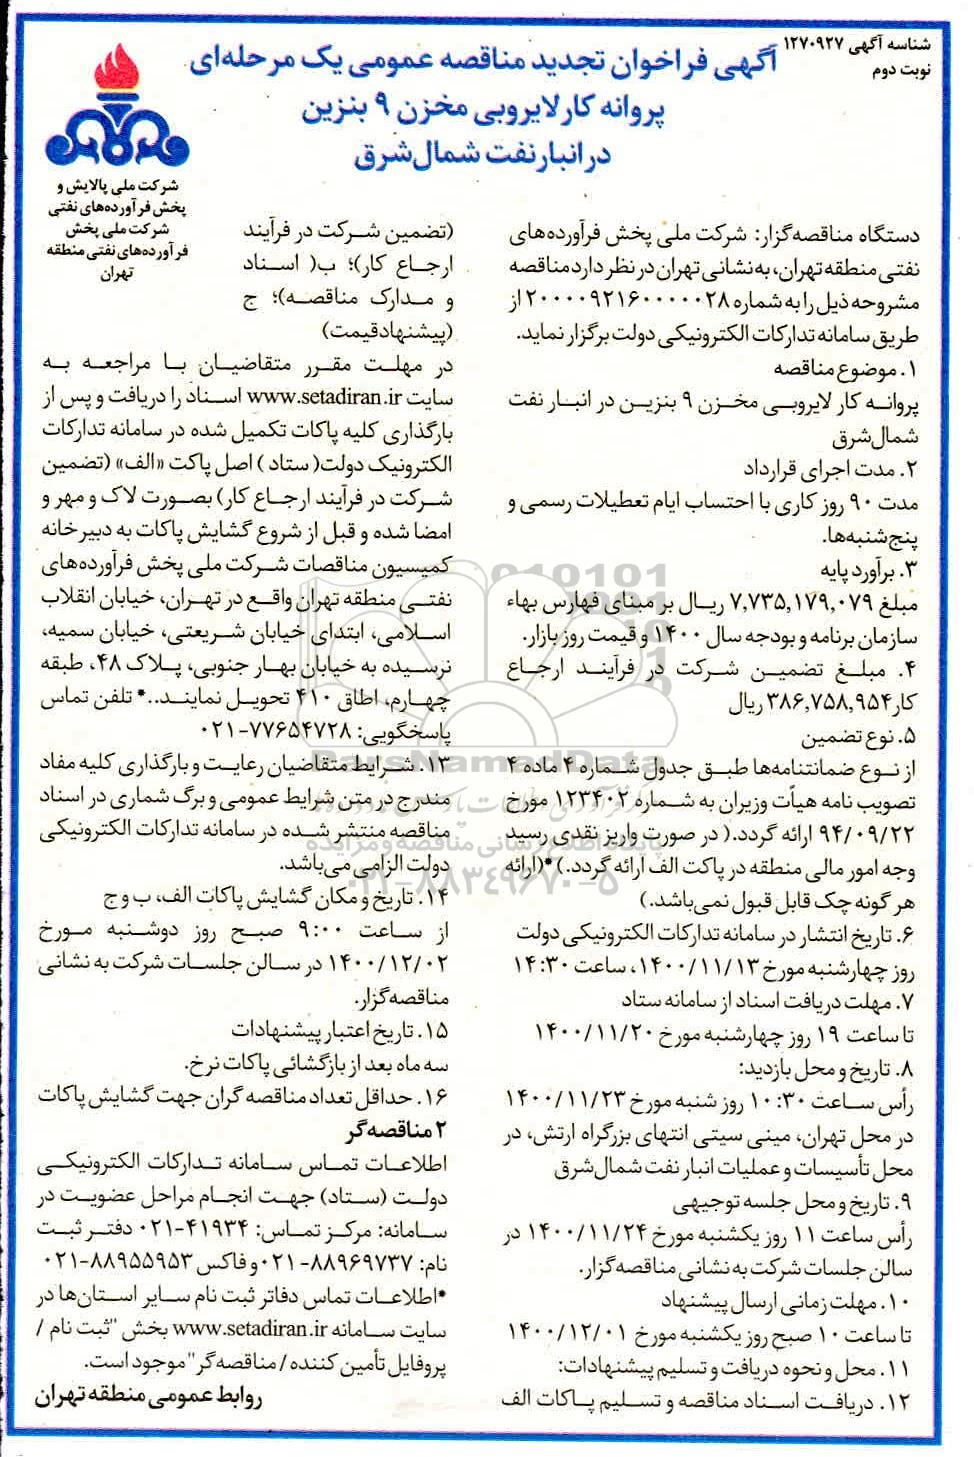 شناسه آگهی ۱۲۷۰۹۲۷
نوبت دوم
آگهی فراخوان تجدید مناقصه عمومی یک مرحله‌ای
پروانه کار لایروبی مخزن ۹ بنزین
در انبار نفت شمال‌شرق
شرکت ملی پالایش و
پخش فرآورده‌های نفتی
شرکت ملی پخش
فرآورده‌های نفتی منطقه
تهران
دستگاه مناقصه‌گزار: شرکت ملی پخش فرآورده‌های
نفتی منطقه تهران، به نشانی تهران در نظر دارد مناقصه
مشروحه ذیل را به شماره ۲۰۰۰۰۹۲۱۶۰۰۰۰۰۲۸ از
طریق سامانه تدارکات الکترونیکی دولت برگزار نماید.
۱. موضوع مناقصه
پروانه کار لایروبی مخزن ۹ بنزین در انبار نفت
شمال‌شرق
۲. مدت اجرای قرارداد
مدت ۹۰ روز کاری با احتساب ایام تعطیلات رسمی و
پنج‌شنبه‌ها.
۳. برآورد پایه
مبلغ ۷,۷۳۵,۱۷۹,۰۷۹ ریال بر مبنای فهارس بهاء
سازمان برنامه و بودجه سال ۱۴۰۰ و قیمت روز بازار.
۴. مبلغ تضمین شرکت در فرآیند ارجاع
کار ۳۸۶,۷۵۸,۹۵۴ ریال
۵. نوع تضمین
از نوع ضمانتنامه‌ها طبق جدول شماره ۴ ماده ۴
تصویب نامه هیأت وزیران به شماره ۱۲۳۴۰۲ مورخ
۹۴/۰۹/۲۲ ارائه گردد.( در صورت واریز نقدی رسید
وجه امور مالی منطقه در پاکت الف ارائه گردد.) *(ارائه
هر گونه چک قابل قبول نمی‌باشد.)
۶. تاریخ انتشار در سامانه تدارکات الکترونیکی دولت
روز چهارشنبه مورخ ۱۴۰۰/۱۱/۱۳، ساعت ۱۴:۳۰
۷. مهلت دریافت اسناد از سامانه ستاد
تا ساعت ۱۹ روز چهارشنبه مورخ ۱۴۰۰/۱۱/۲۰
۸. تاریخ و محل بازدید:
رأس ساعت ۱۰:۳۰ روز شنبه مورخ ۱۴۰۰/۱۱/۲۳
در محل تهران، مینی سیتی انتهای بزرگراه ارتش، در
محل تأسیسات و عملیات انبار نفت شمال‌شرق
۹. تاریخ و محل جلسه توجیهی
رأس ساعت ۱۱ روز یکشنبه مورخ ۱۴۰۰/۱۱/۲۴ در
سالن جلسات شرکت به نشانی مناقصه‌گزار.
۱۰. مهلت زمانی ارسال پیشنهاد
تا ساعت ۱۰ صبح روز یکشنبه مورخ ۱۴۰۰/۱۲/۰۱
۱۱. محل و نحوه دریافت و تسلیم پیشنهادات:
۱۲. دریافت اسناد مناقصه و تسلیم پاکات الف
(تضمین شرکت در فرآیند
ارجاع کار)؛ ب( اسناد
و مدارک مناقصه)؛ ج
(پیشنهاد قیمت)
در مهلت مقرر متقاضیان با مراجعه به
سایت www.setadiran.ir اسناد را دریافت و پس از
بارگذاری کلیه پاکات تکمیل شده در سامانه تدارکات
الکترونیک دولت( ستاد ) اصل پاکت «الف» (تضمین
شرکت در فرآیند ارجاع کار) بصورت لاک و مهر و
امضا شده و قبل از شروع گشایش پاکات به دبیرخانه
کمیسیون مناقصات شرکت ملی پخش فرآورده‌های
نفتی منطقه تهران واقع در تهران، خیابان انقلاب
اسلامی، ابتدای خیابان شریعتی، خیابان سمیه،
نرسیده به خیابان بهار جنوبی، پلاک ۴۸، طبقه
چهارم، اطاق ۴۱۰ تحویل نمایند..* تلفن تماس
پاسخگویی: ۷۷۶۵۴۷۲۸-۰۲۱
۱۳. شرایط متقاضیان رعایت و بارگذاری کلیه مفاد
مندرج در متن شرایط عمومی و برگ شماری در اسناد
مناقصه منتشر شده در سامانه تدارکات الکترونیکی
دولت الزامی می‌باشد.
۱۴. تاریخ و مکان گشایش پاکات الف، ب و ج
از ساعت ۹:۰۰ صبح روز دوشنبه مورخ
۱۴۰۰/۱۲/۰۲ در سالن جلسات شرکت به نشانی
مناقصه‌گزار.
۱۵. تاریخ اعتبار پیشنهادات
سه ماه بعد از بازگشائی پاکات نرخ.
۱۶. حداقل تعداد مناقصه گران جهت گشایش پاکات
۲ مناقصه‌گر
اطلاعات تماس سامانه تدارکات الکترونیکی
دولت (ستاد) جهت انجام مراحل عضویت در
سامانه: مرکز تماس: ۴۱۹۳۴-۰۲۱ دفتر ثبت
نام: ۸۸۹۶۹۷۳۷-۰۲۱ و فاکس ۸۸۹۵۵۹۵۳-۰۲۱
*اطلاعات تماس دفاتر ثبت نام سایر استان‌ها در
سایت سامانه www.setadiran.ir بخش "ثبت نام /
پروفایل تأمین کننده / مناقصه‌گر" موجود است.
روابط عمومی منطقه تهران
ParsNamadData
۰۲۱-۸۸۳۴۹۶۷۰-۵